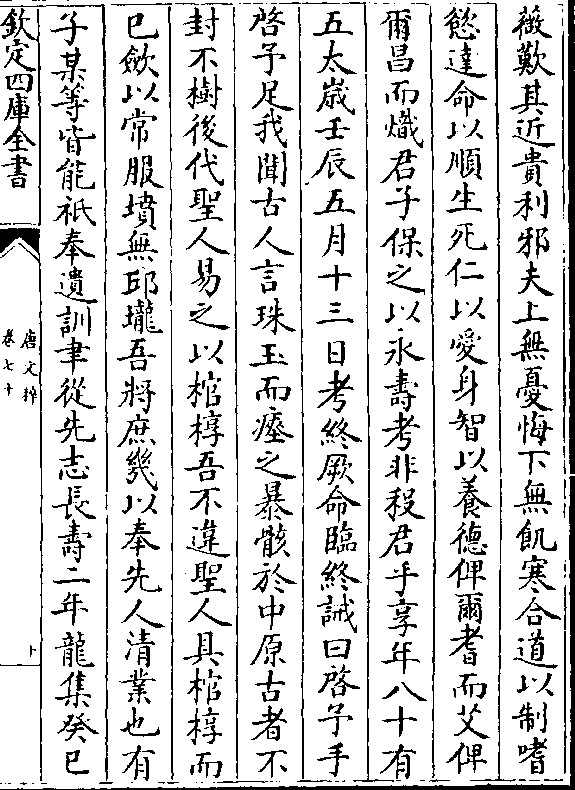 薇歎其近貴利邪夫上無憂悔下無飢寒合道以制嗜
慾達命以順生死仁以愛身智以養德俾爾耆而艾俾
爾昌而熾君子保之以永壽考非稅君乎享年八十有
五太歲壬辰五月十三日考終厥命臨終誡曰啓予手
啓予足我聞古人言珠玉而瘞之暴骸於中原古者不
封不樹後代聖人易之以棺椁吾不違聖人具棺椁而
已斂以常服墳無邱壠吾將庶幾以奉先人清業也有
子某等皆能祇奉遺訓聿從先志長壽二年龍集癸巳
欽定四庫全書
唐文粹
卷七十